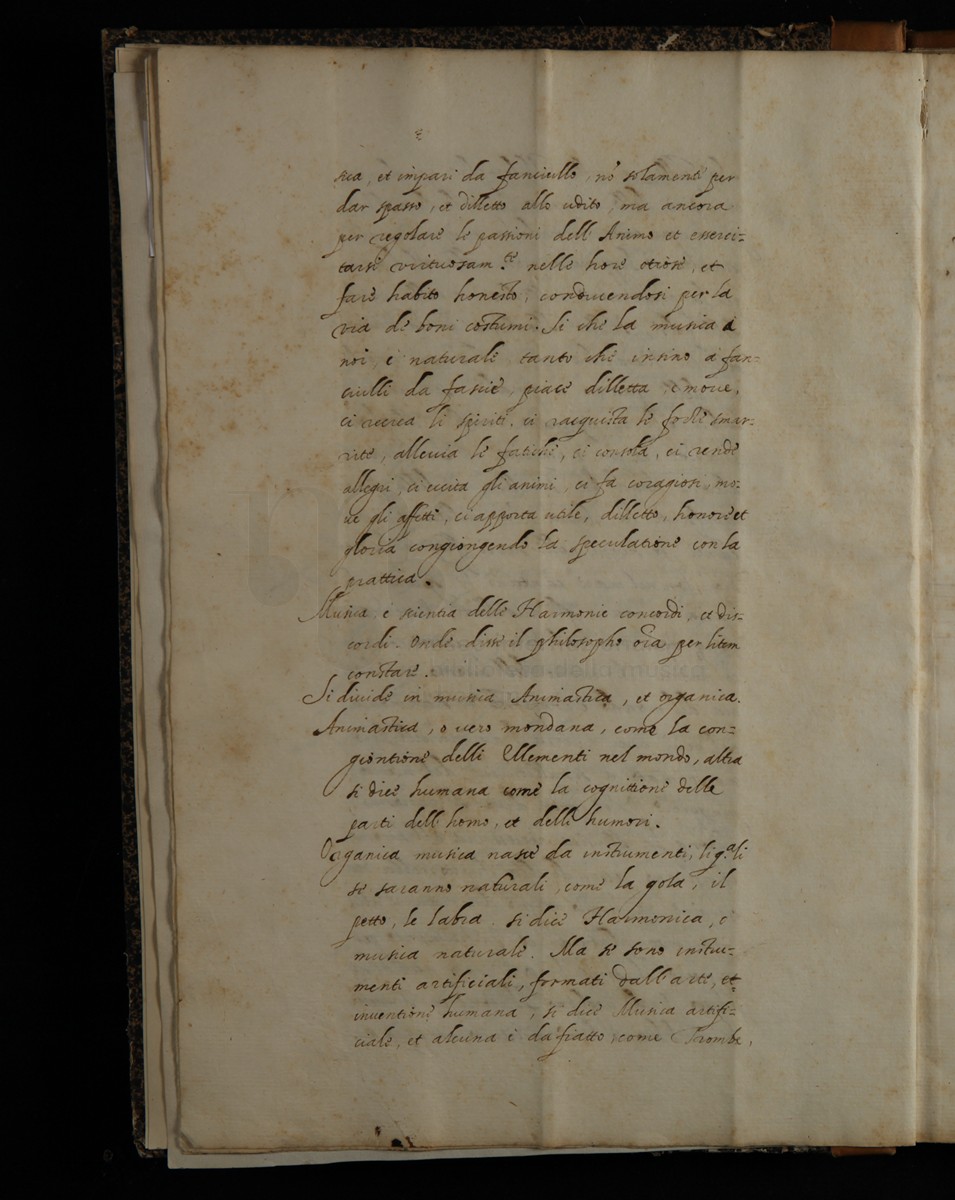 sica, et impari da fanciullo, nõ solamente per
dar spasso, et dilletto allo udito, ma ancora
per regolare le passioni dell' Animo et esserci-
tarsi virtuosam.te nelle hore otiose, et
fare habito honesto, conducendosi per la
via de boni costumi. Si che la musica à
noi, è naturale tanto che insino à fan-
ciulli da fascie, piace dilletta, e move,
ci recrea li spiriti, ci racquista le forze smar-
rite, allevia le fatiche, ci consola, ci rende
allegri, ci eccita gli animi, ci fa coragiosi, mo-
ve gli affetti, ci apporta utile, dilletto, honore et
gloria congiongendo la speculatione con la
prattica.
Musica è scientia delle Harmonie concordi, et dis-
cordi. Onde disse il philosopho per litem
constare.
Si divide in musica Animastica, et organica.
Animastica, o vero mondana, come la con-
giontione delli Ellementi nel mondo, altra
si dice humana come la cognitione delle
parti dell' homo, et delli humori.
Organica musica nasce da instrumenti, li q.ali
se saranno naturali, come la gola, il
petto, le labra. si dice Harmonica, e
musica naturale. Ma se sono instru-
menti artificiali, formati dall' arte, et
inventione humana, si dice Musica artifi-
ciale, et alcuna è da fiatto, come Trombe,